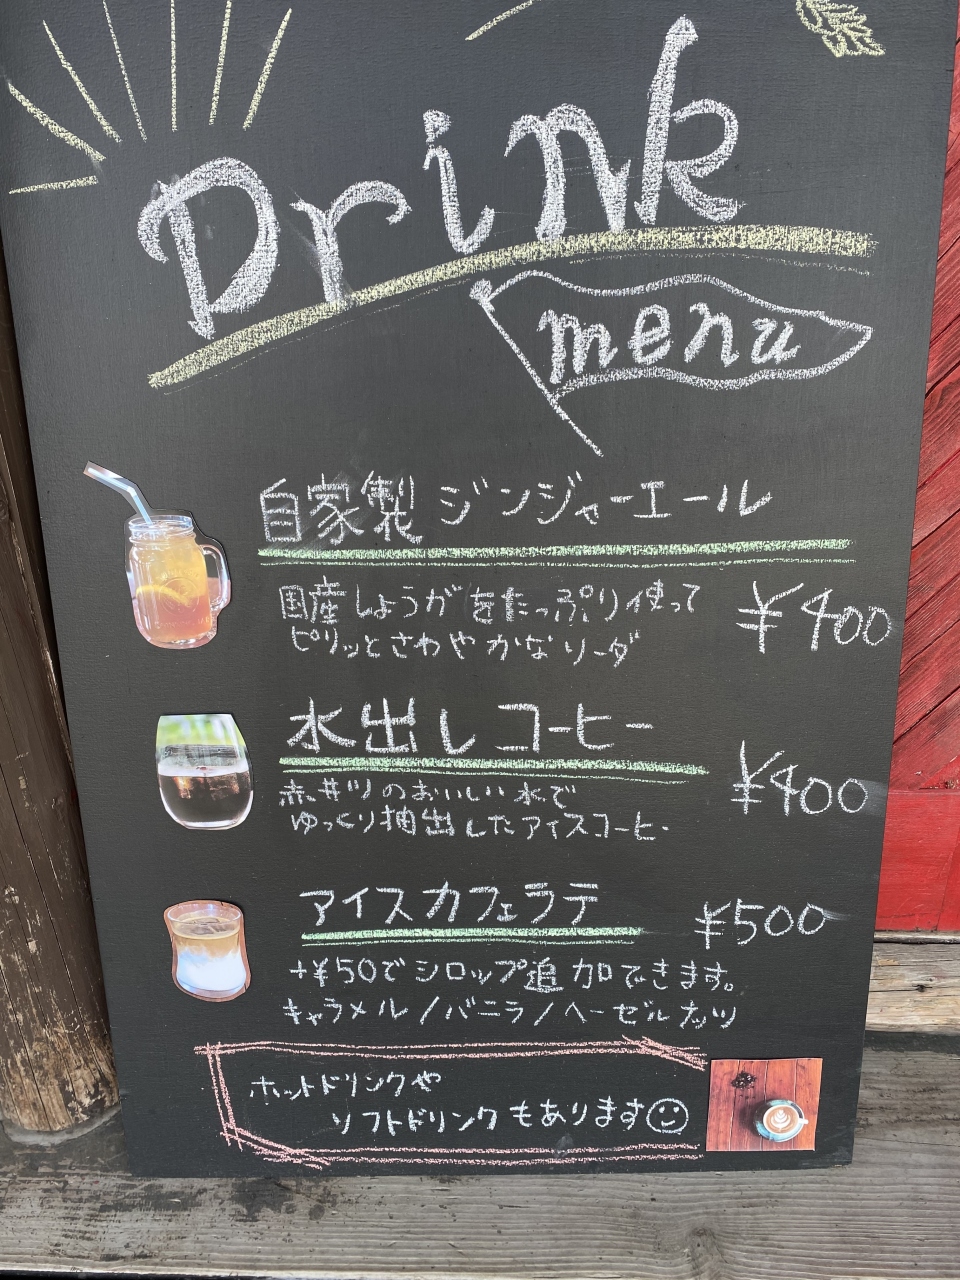 Drink
menu
自家製 ジンジャーエール
国産しょうがをたっぷり使って
ピリッとさわやかなソーダ
¥400
水出しコーヒー
赤井川のおいしい水で
ゆっくり抽出したアイスコーヒー
¥400
アイスカフェラテ
¥500
+¥50でシロップ追加できます。
キャラメル/バニラ/ヘーゼルナッツ
ホットドリンクや
ソフトドリンクもあります☺